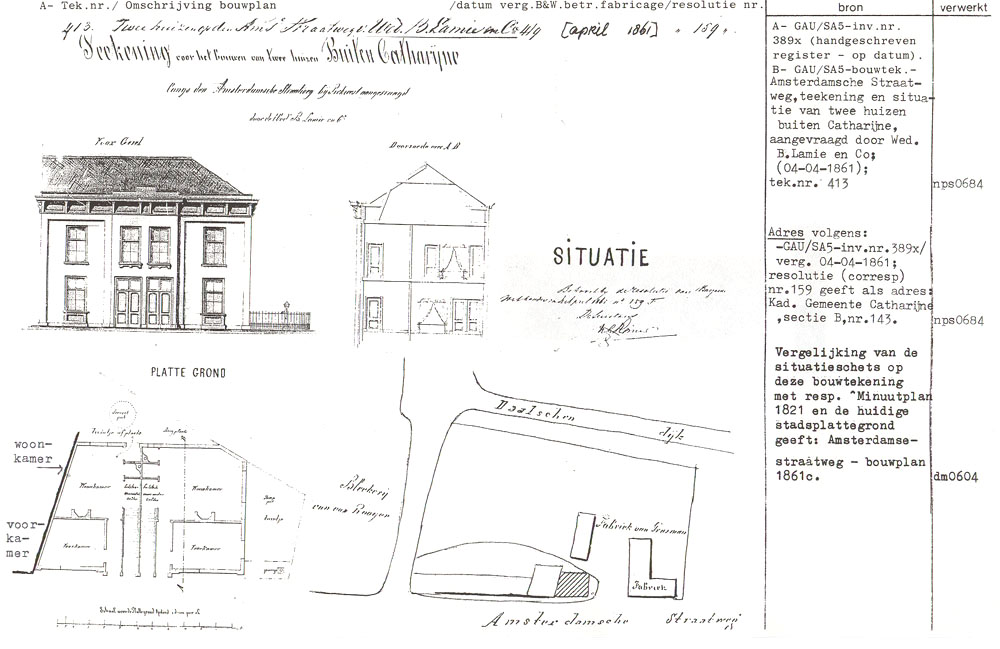 A- Tek.nr./ Omschrijving bouwplan /datum verg.B&W.betr.fabricage/resolutie nr. bron verwerkt
413. Twee huizen op den Ams. Straatweg v. Wed. B. Lamie en Co 4/4 [april 1861] " 159 ".
Teekening voor het bouwen van twee huizen Buiten Catharijne
langs den Amsterdamsche Steenweg bij Rekwest aangevraagd
door de Wed. B. Lamie en Co
Voor Gevel
Doorsnede over A B
SITUATIE
Behoort bij de resolutie van Burgem
Wethouders 1861 no 159 F
De Secretaris
PLATTE GROND
woon-
kamer
voor-
ka-
mer
Woonkamer
Woonkamer
Voorkamer
Voorkamer
Bleekerij
van van Rooijen
Daalschen dijk
Fabriek van
Fabriek
Amsterdamsche Straatweg
A- GAU/SA5-inv.nr.
389x (handgeschreven
register - op datum).
B- GAU/SA5-bouwtek.-
Amsterdamsche Straat-
weg,teekening en situa-
tie van twee huizen
buiten Catharijne,
aangevraagd door Wed.
B.Lamie en Co;
(04-04-1861);
tek.nr. 413 nps0684
Adres volgens:
-GAU/SA5-inv.nr.389x/
verg. 04-04-1861;
resolutie (corresp)
nr.159 geeft als adres:
Kad. Gemeente Catharijne
,sectie B,nr.143. nps0684
Vergelijking van de
situatieschets op
deze bouwtekening
met resp. ^Minuutplan
1821 en de huidige
stadsplattegrond
geeft: Amsterdamse-
straatweg - bouwplan
1861c. dm0604